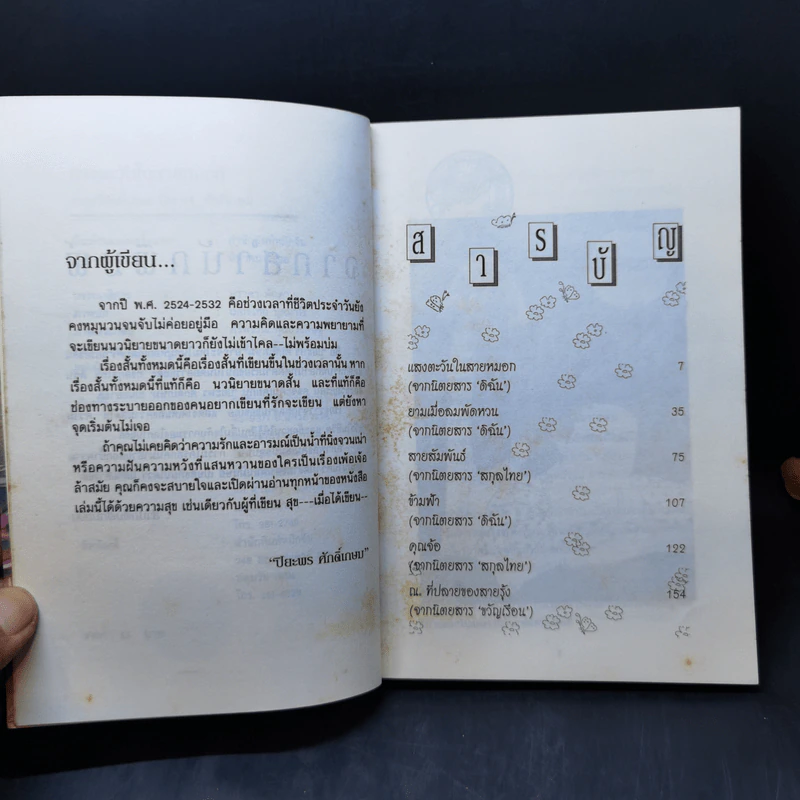 จากผู้เขียน...
จากปี พ.ศ. 2524-2532 คือช่วงเวลาที่ชีวิตประจำวันยัง
คงหมุนวนจนจับไม่ค่อยอยู่มือ ความคิดและความพยายามที่
จะเขียนนวนิยายขนาดยาวก็ยังไม่เข้าไคล--ไม่พร้อมบ่ม
เรื่องสั้นทั้งหมดนี้คือเรื่องสั้นที่เขียนขึ้นในช่วงเวลานั้น หาก
เรื่องสั้นทั้งหมดนี้ที่แท้ก็คือ นวนิยายขนาดสั้น และที่แท้ก็คือ
ช่องทางระบายออกของคนอยากเขียนที่รักจะเขียน แต่ยังหา
จุดเริ่มต้นไม่เจอ
ถ้าคุณไม่เคยคิดว่าความรักและอารมณ์เป็นน้ำที่นิ่งจวนเน่า
หรือความฝันความหวังที่แสนหวานของใครเป็นเรื่องเพ้อเจ้อ
ล้าสมัย คุณก็คงจะสบายใจและเปิดผ่านอ่านทุกหน้าของหนังสือ
เล่มนี้ได้ด้วยความสุข เช่นเดียวกับผู้ที่เขียน สุข---เมื่อได้เขียน--
"ปิยะพร ศักดิ์เกษม"
สารบัญ
แสงตะวันในสายหมอก 7
(จากนิตยสาร 'ดิฉัน')
ยามเมื่อลมพัดหวน 35
(จากนิตยสาร 'ดิฉัน')
สายสัมพันธ์ 75
(จากนิตยสาร 'สกุลไทย')
ข้ามฟ้า 107
(จากนิตยสาร 'ดิฉัน')
คุณจ้อ 122
(จากนิตยสาร 'สกุลไทย')
ณ. ที่ปลายของสายรุ้ง 154
(จากนิตยสาร 'ขวัญเรือน')